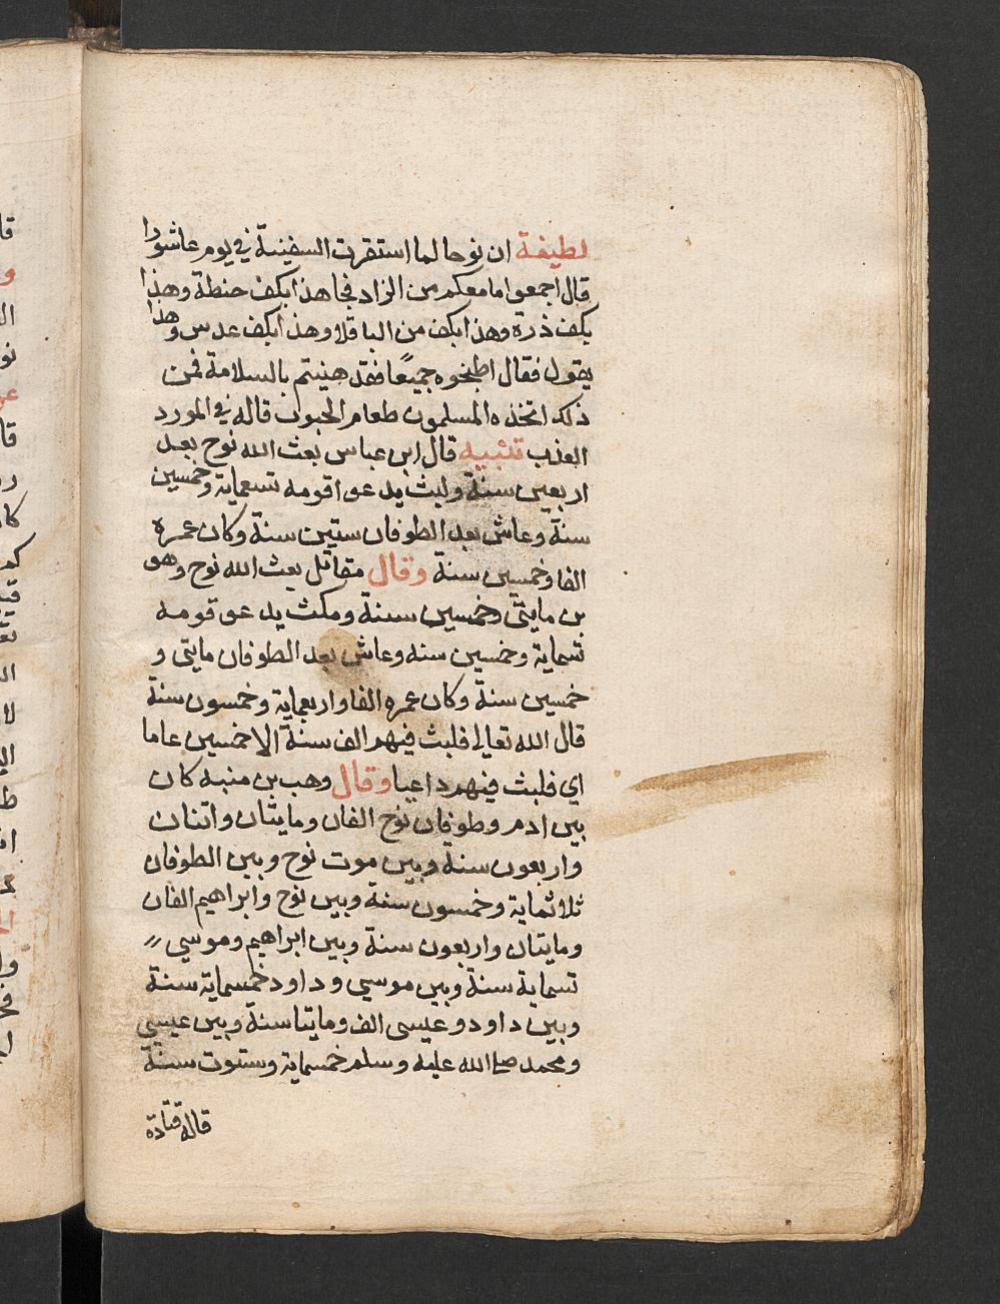 لطيفة ان نوحا لما استقرت السفينة في يوم عاشورا
قال اجمعوا ما معكم من الزاد فجا هذا بكف حنطة وهذا
بكف ذرة وهذا بكف من الباقلا وهذا بكف عدس وهذا
يقول فقال اطبخوه جميعًا فقد هنيتم بالسلامة فمن
ذلك اتخذه المسلمون طعام الحبوب قاله في المورد
العذب تنبيه قال ابن عباس بعث الله نوح بعد
اربعين سنة ولبث يدعوا قومه تسعماية وخمسين
سنة وعاش بعد الطوفان ستين سنة وكان عمره
الفا وخمسين سنة وقال مقاتل بعث الله نوح وهو
بن مايتى وخمسين سنة ومكث يدعو قومه
تسماية وخسين سنه وعاش بعد الطوفان مايتى و
خمسين سنة وكان عمره الفا واربعماية وخمسون سنة
قال الله تعالى فلبث فيهم الف سنة الا خمسين عاما
اي فلبث فيهم داعيا وقال وهب بن منبه كان
بين ادم وطوفان نوح الفان ومايتان واتنان
واربعون سنة وبين موت نوح وبين الطوفان
ثلاثماية وخمسون سنة وبين نوح وابراهيم الفان
ومايتان واربعون سنة وبين ابراهيم وموسي
تسماية سنة وبين موسي وداود خمسماية سنة
وبين داود وعيسى الف ومايتا سنة وبين عيسي
ومحمد صلى الله عليه وسلم خمسماية وستوت سنة
قاله قتادة